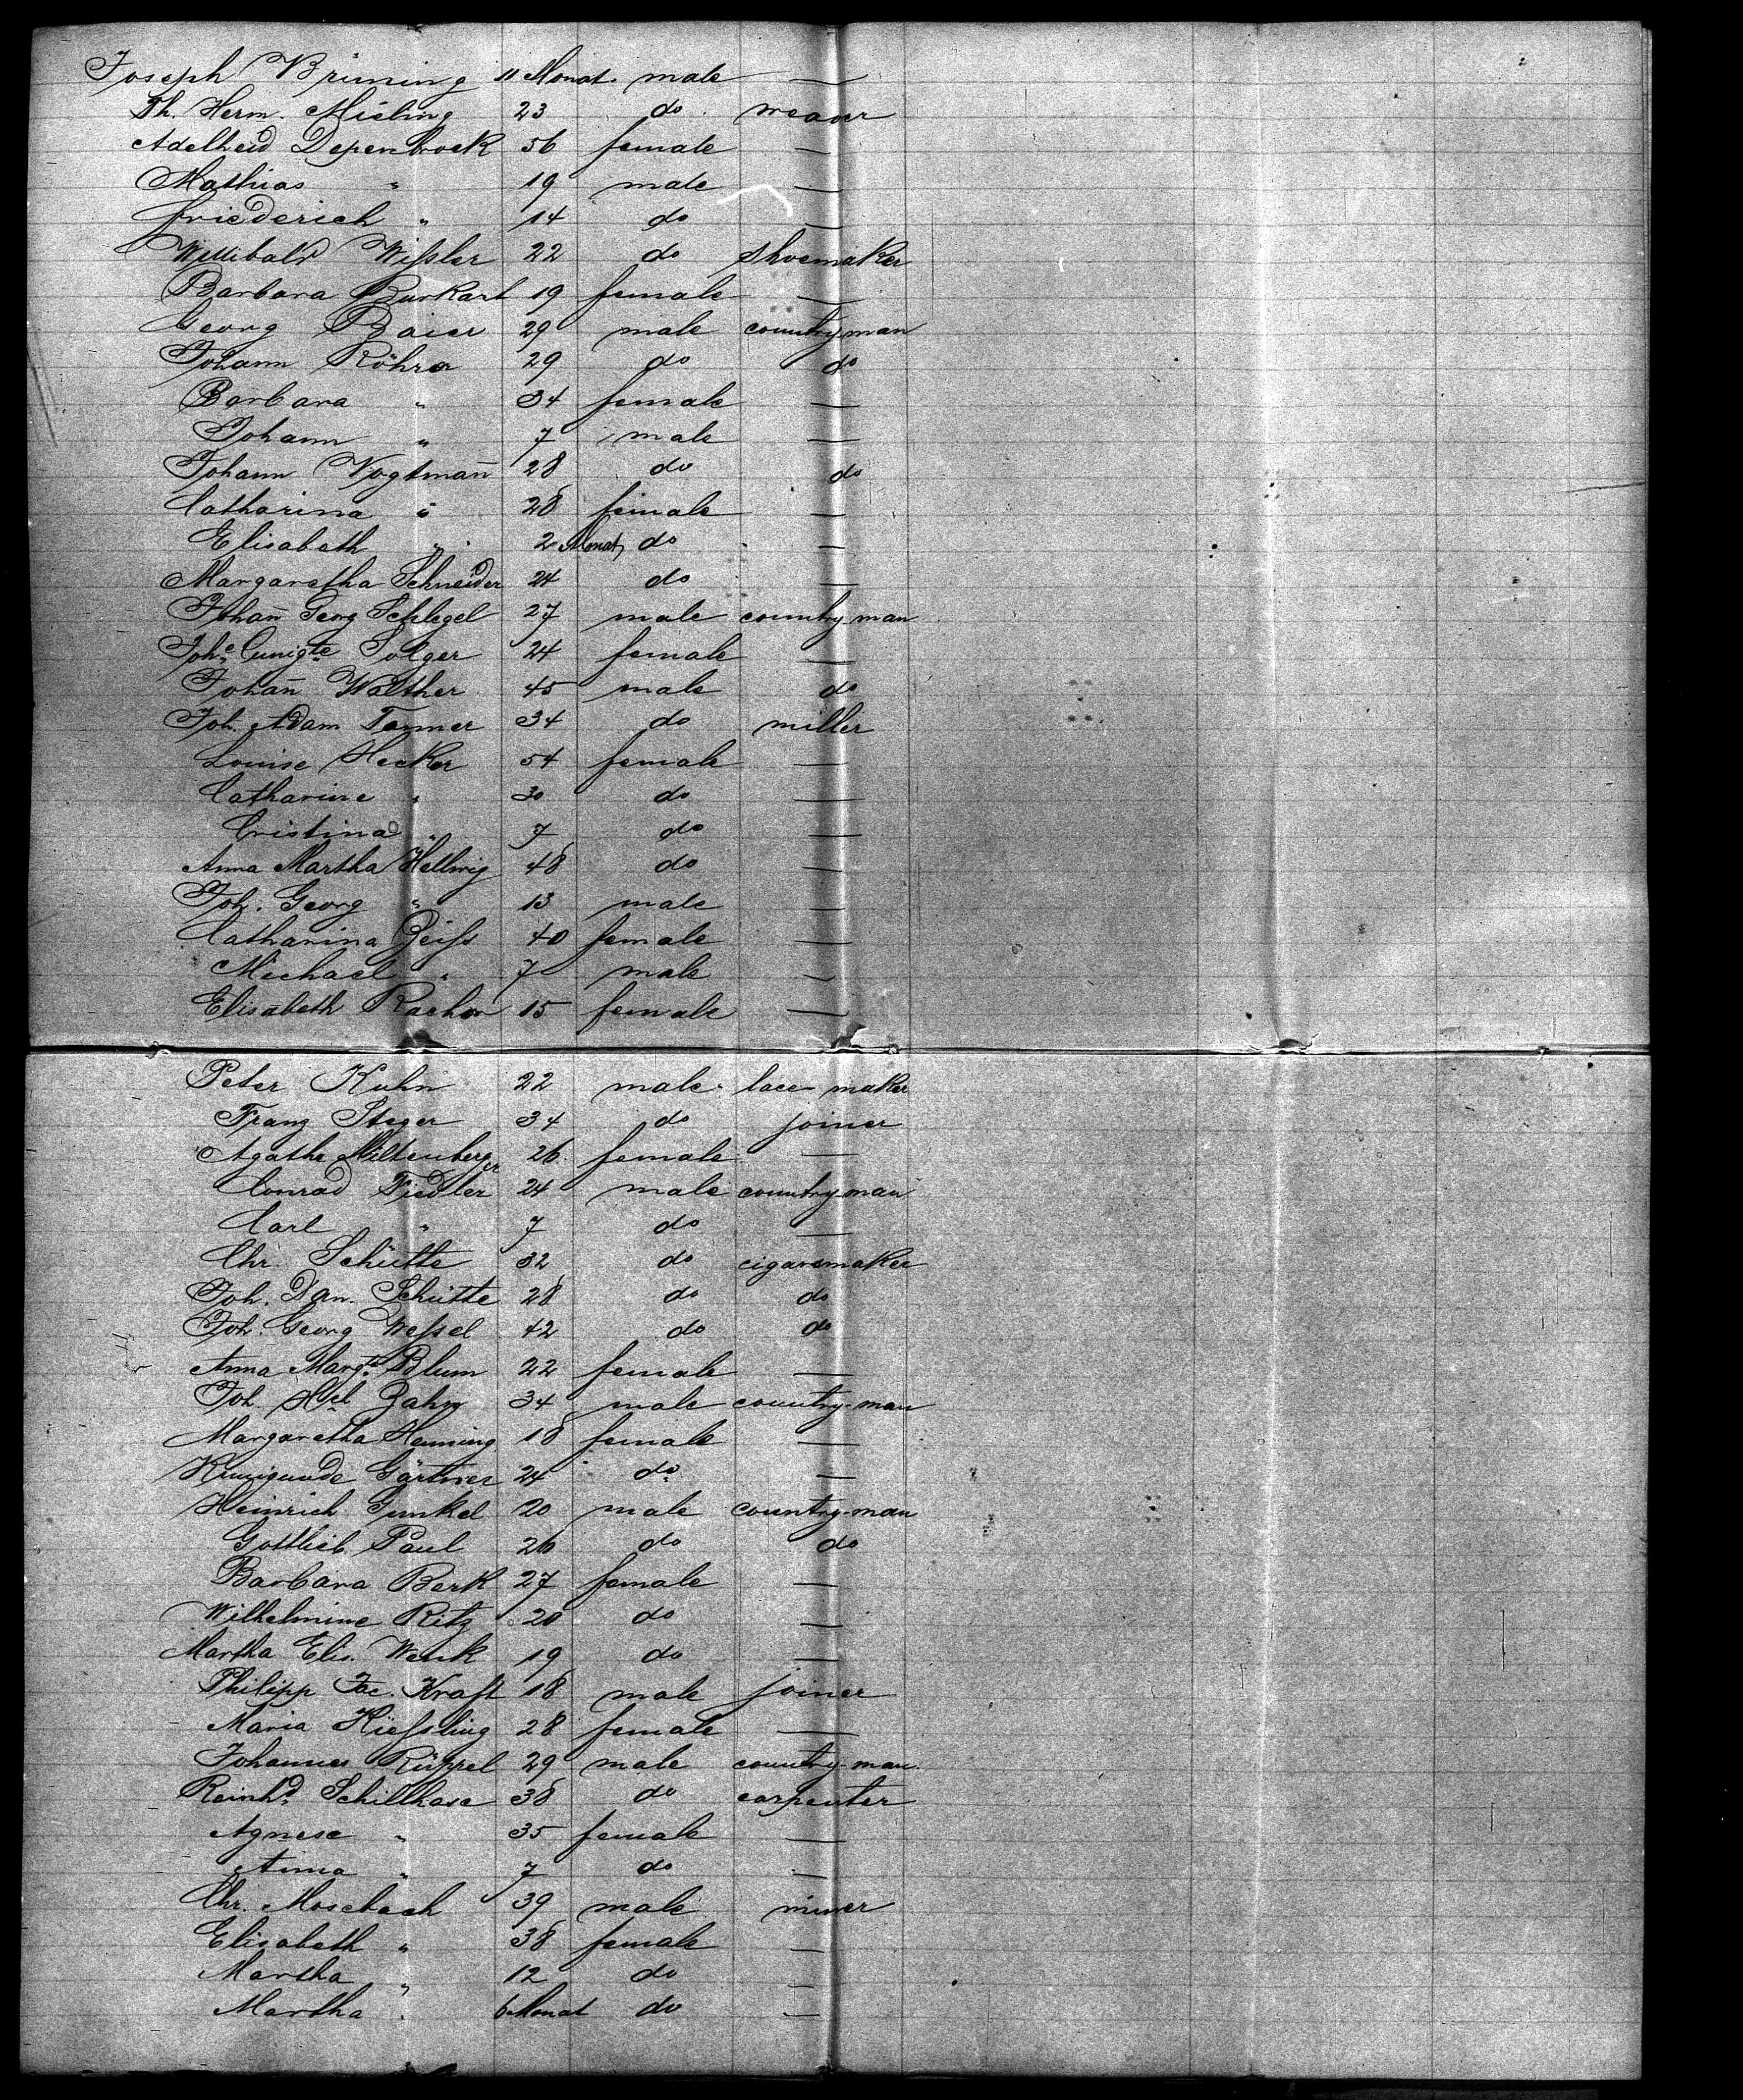 Joseph Brüning 11 Monat. male —
Th. Herm. Misling 23 do. weaver
Adelheid Depenbrock 56 female —
Mathias " 19 male —
Friederich " 14 do —
Willibald Wißler 22 do shoemaker
Barbara Burkart 19 female —
Georg Baier 29 male countryman
Johann Röhrer 29 do do
Barbara " 34 female —
Johann " 7 male —
Johann Vogtman̄ 28 do do
Catharina " 28 female —
Elisabeth " 2 Monat do —
Margaretha Schneider 24 do —
Johan̄ Georg Schlegel 27 male country man
Johe Cunigte Solger 24 female —
Johan̄ Walther 45 male do
Joh. Adam Tanner 34 do miller
Louise Hecker 54 female —
Catharine " 30 do —
Cristina " 7 do —
Anna Martha Hellwig 48 do —
Joh. Georg " 13 male —
Catharina Zeiß 40 female —
Michael " 7 male —
Elisabeth Rachor 15 female —
Peter Kuhn 22 male lace maker
Franz Steger 34 do joiner
Agathe Miltenberger 26 female —
Conrad Fiedler 24 male countryman
Carl " 7 do —
Chr. Schütte 32 do cigarsmaker
Joh. Dan. Schütte 28 do do
Joh. Georg Weßel 42 do do
Anna Margte Blum 22 female —
Joh. Zahn 34 male country-man
Margaretha Henning 18 female —
Kunigunde Gärtner 24 do —
Heinrich Gunkel 20 male country-man
Gottlieb Paul 26 do do
Barbara Berk 27 female —
Wilhelmine Ritz 20 do —
Martha Elis. Wenk 19 do —
Philipp Jac. Kraft 18 male joiner
Maria Kießling 28 female —
Johannes Rüppel 29 male country-man.
Reinhd Schillhase 38 do carpenter
Agnese " 35 female —
Anna " 7 do —
Chr. Mosebach 39 male miner
Elisabeth " 38 female —
Martha " 12 do —
Martha " 6 Monat do —